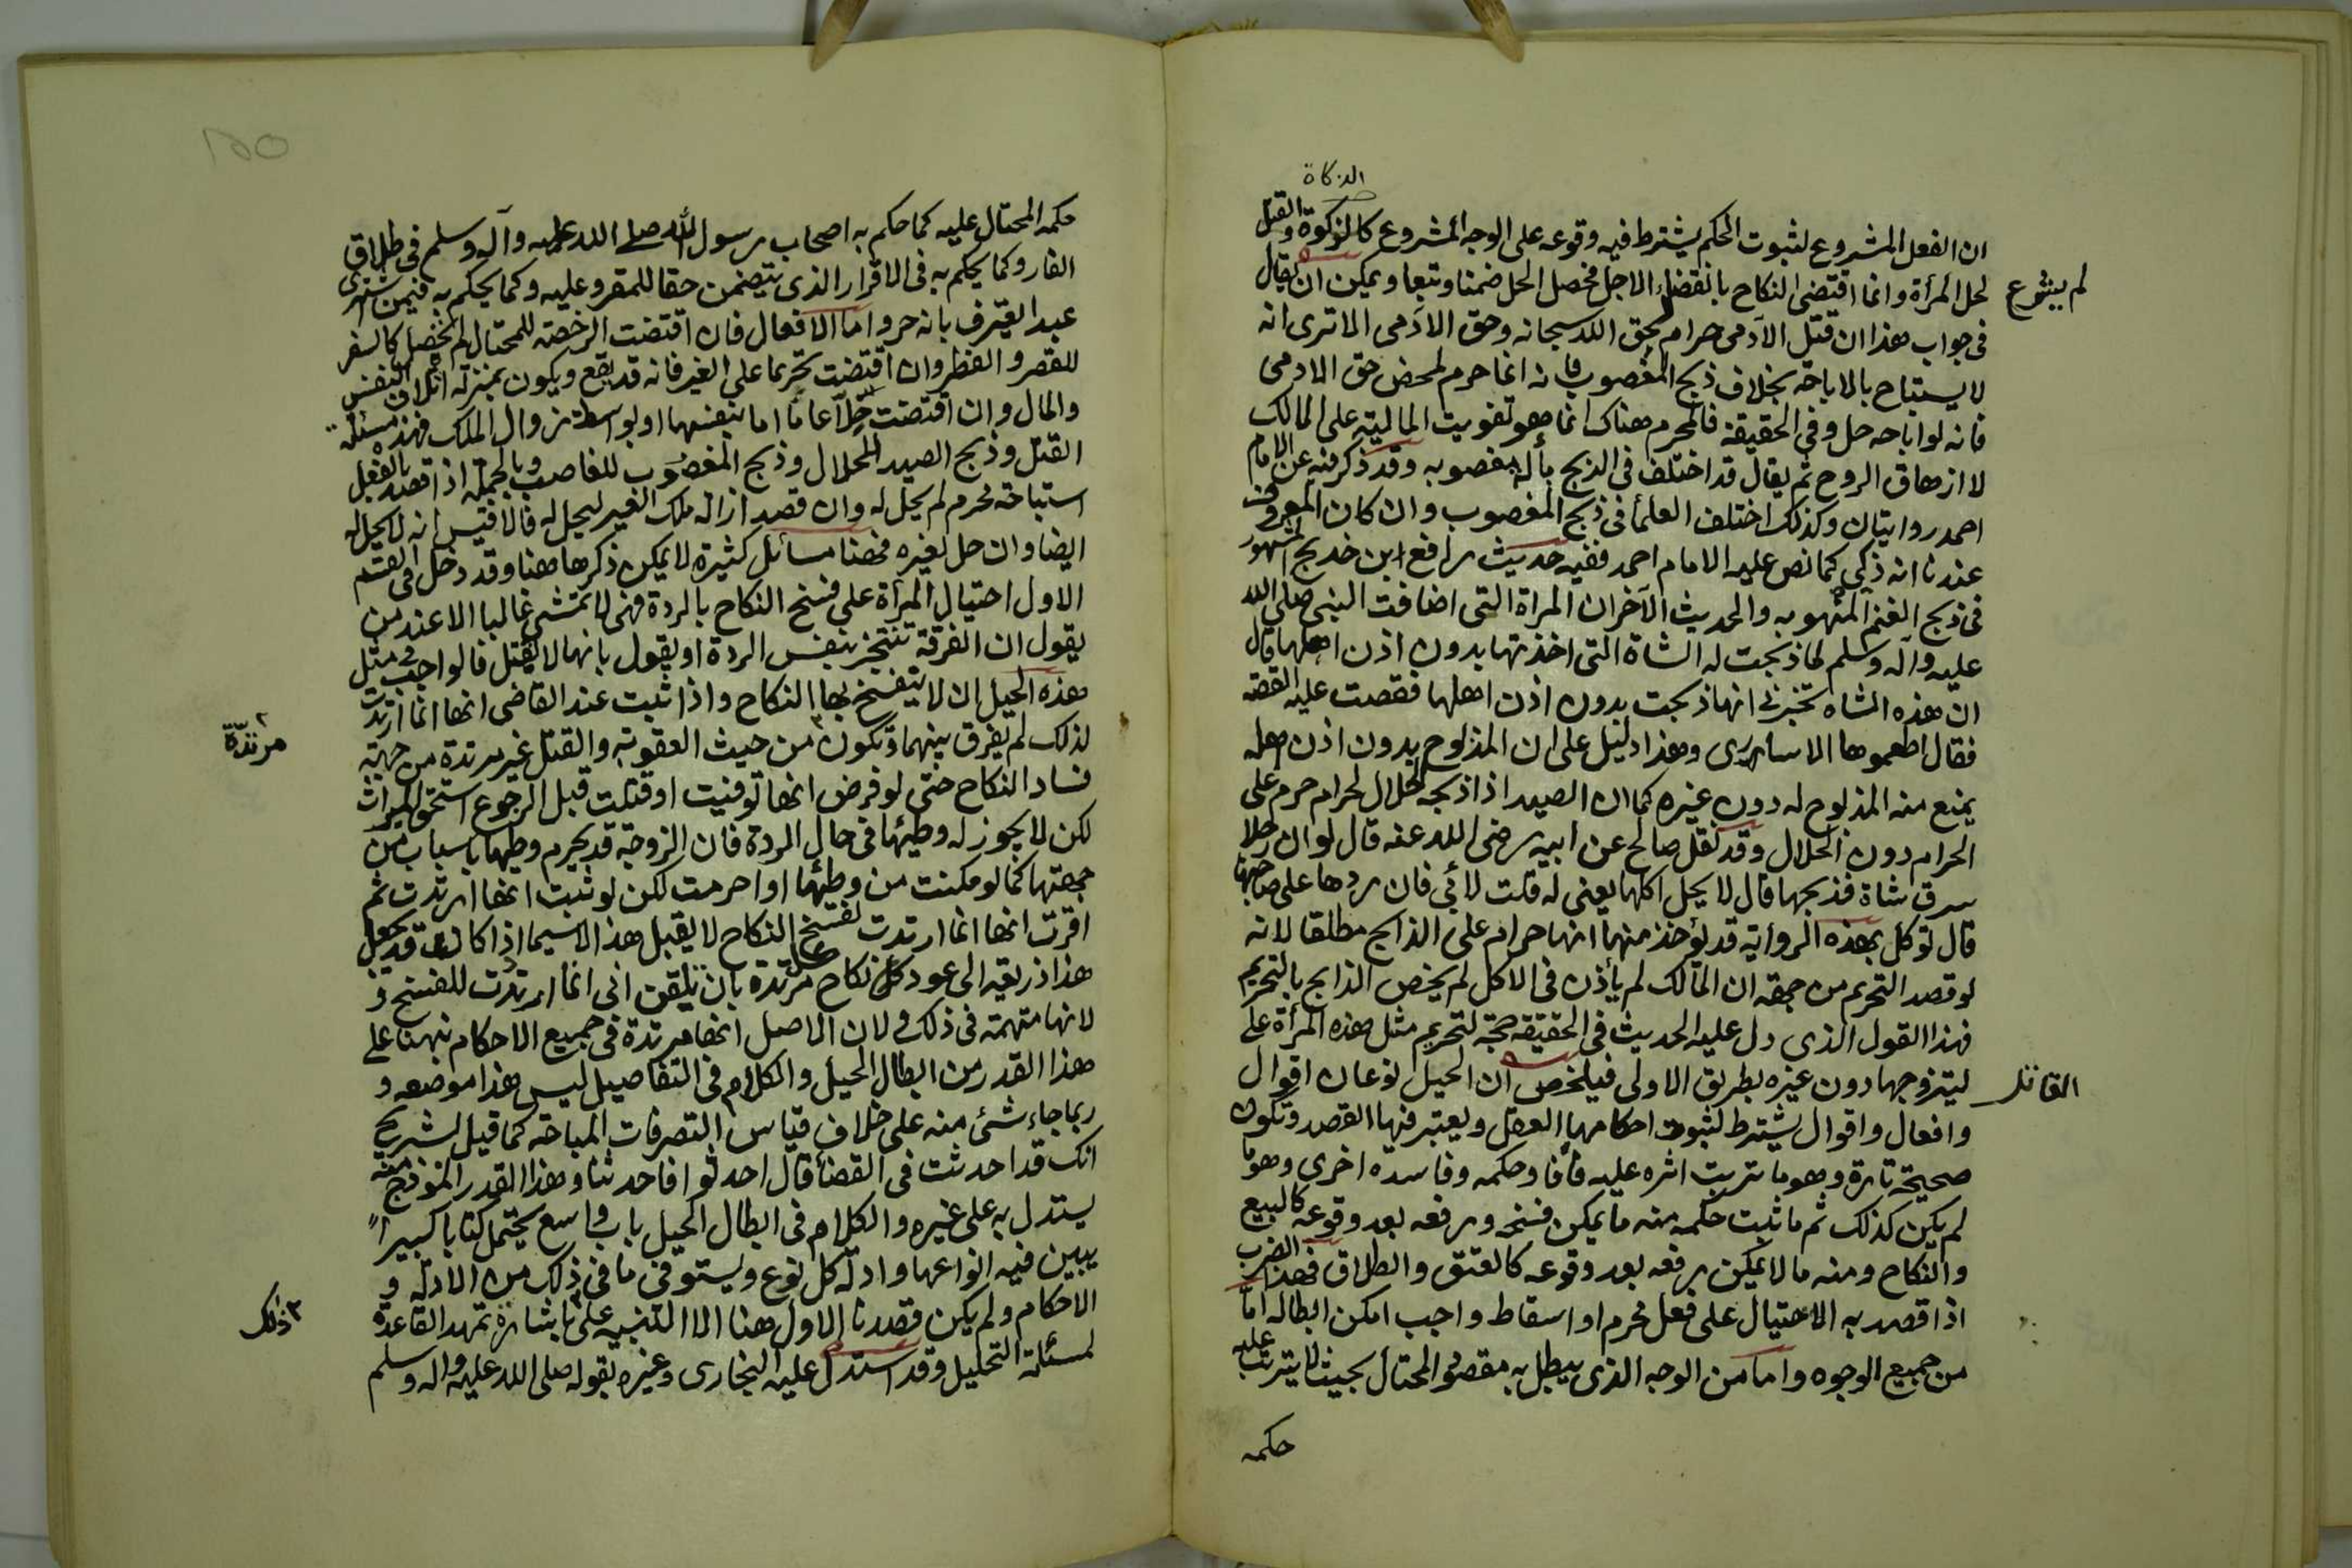 الذكاة
ان الفعل المشروع لثبوت الحكم يشترط فيه وقوعه على الوجه المشروع كالزكوة والقتل
لم يشرع
لحل المرأة وانما اقتضى النكاح بانقضاء الاجل فحصل الحل ضمنا وتبعا ويمكن ان يقال
فى جواب هذا ان قتل الآدمى حرام لحق الله سبحانه وحق الآدمى الا ترى انه
لا يستباح بالاباحة بخلاف ذبح المغصوب فانه انما حرم لمحض حق الادمى
فانه لو اباحه حل وفى الحقيقة فالمحرم هناك انما هو تفويت المالية على المالك
لا ازهاق الروح ثم يقال قد اختلف فى الذبح بآلة مغصوبه وقد ذكر فيه عن الامام
احمد روايتان وكذلك اختلف العلمأ فى ذبح المغصوب وان كان المعروف
عندنا انه ذكى كما نص عليه الامام احمد ففيه حديث رافع ابن خديج المشهور
فى ذبح الغنم المنهوبه والحديث الآخر ان المراة التى اضافت النبى صلى الله
عليه وآله وسلم لما ذبحت له الشاة التى اخذتها بدون اذن اهلها قال
ان هذه الشاه تخبرنى انها ذبحت بدون اذن اهلها فقصت عليه القصه
فقال اطعموها الاسارى وهذا دليل على ان المذبوح بدون اذن اهله
يمنع منه المذبوح له دون غيره كما ان الصيد اذا ذبحه الحلال لحرام حرم على
الحرام دون الحلال وقد نقل صالح عن ابيه رضى الله عنه قال لو ان رجلا
سرق شاة فذبحها قال لا يحل اكلها يعنى له قلت لأبى فان ردها على صاحبها
قال توكل بهذه الرواية قد يؤخذ منها انها حرام على الذابح مطلقا لانه
لو قصد التحريم من جهة ان المالك لم يأذن فى الاكل لم يخص الذابح بالتحريم
فهذا القول الذى دل عليه الحديث فى الحقيقة حجة لتحريم مثل هذه المرأة على
القاتل
ليتزوجها دون غيره بطريق الاولى فيلخص ان الحيل نوعان اقوال
وافعال واقوال يشترط لثبوت احكامها العقل ويعتبر فيها القصد وتكون
صحيحة تارة وهو ما ترتب اثره عليه فأفا وحكمه وفاسده اخرى وهو ما
لم يكن كذلك ثم ما ثبت حكمه منه ما يمكن فسخه ورفعه بعد وقوعه كالبيع
والنكاح ومنه ما لا يمكن رفعه بعد وقوعه كالعتق والطلاق فهذا الضرب
اذا قصد به الاحتيال على فعل محرم او اسقاط واجب امكن ابطاله اما
من جميع الوجوه واما من الوجه الذى يبطل به مقصود المحتال بحيث لا يترتب عليه
حكمه
حكمه المحتال عليه كما حكم به اصحاب رسول الله صلى الله عليه وآله وسلم فى طلاق
الفار وكما يحكم به فى الاقرار الذى يتضمن حقا للمقر وعليه وكما يحكم به فيمن اشترى
عبدا يعترف بانه حر واما الافعال فان اقتضت الرخصة للمحتال لم تحصل كالسفر
للقصر والفطر وان اقتضت تحريما على الغير فانه قد يقع ويكون بمنزلة اتلاف النفس
والمال وان اقتضت حلّا عامّا اما بنفسها او بواسطة زوال الملك فهذه مسئلة
القتل وذبح الصيد للحلال وذبح المغصوب للغاصب وبالجملة اذا قصد بالفعل
استباحة محرم لم يحل له وان قصد ازالة ملك الغير ليحل له فالاقيس انه لا يحل له
ايضا وان حل لغيره فهنا مسائل كثيرة لا يمكن ذكرها هنا وقد دخل فى القسم
الاول احتيال المرأة على فسخ النكاح بالردة فهى لا تمشى غالبا الا عند من
يقول ان الفرقة تتنجز بنفس الردة او يقول بانها لا تقتل فالواجب فى مثل
هذه الحيل ان لا ينفسخ بها النكاح واذا ثبت عند القاضى انها انما ارتدت
٢ مرتدّة
لذلك لم يفرق بينهما وتكون من حيث العقوبة والقتل غير مرتدة من جهة
فساد النكاح حتى لو فرض انها توفيت او قتلت قبل الرجوع استحق الميراث
لكن لا يجوز له وطيئها فى حال الردة فان الزوجة قد يحرم وطيها باسباب من
جهتها كما لو مكنت من وطئها او احرمت لكن لو ثبت انها ارتدت ثم
اقرت انها انما ارتدت لفسخ النكاح لا يقبل هذا لا سيما اذا كان قد يجعل
هذا ذريعة الى عود كل نكاح مرتدة بان تلقن انى انما ارتدت للفسخ و
لانها متهمة فى ذلك ولان الاصل انها مرتدة فى جميع الاحكام نبهنا على
هذا القدر من ابطال الحيل والكلام فى التفاصيل ليس هذا موضعه و
ربما جاء شئ منه على خلاف قياس التصرفات المباحة كما قيل لشريح
انك قد احدثت فى القضأ قال احدثوا فاحدثنا وهذا القدر انموذج منه
يستدل به على غيره والكلام فى ابطال الحيل باب واسع يحتمل كتابا كبيراً
يبين فيه انواعها وادلة كل نوع ويستوفى ما فى ذلك من الادلة و
٣ ذلك
الاحكام ولم يكن قصدنا الاول هنا الا التنبيه على باشارة تمهد القاعدة
لمسئلة التحليل وقد استدل عليه البخارى وغيره بقوله صلى الله عليه واله وسلم